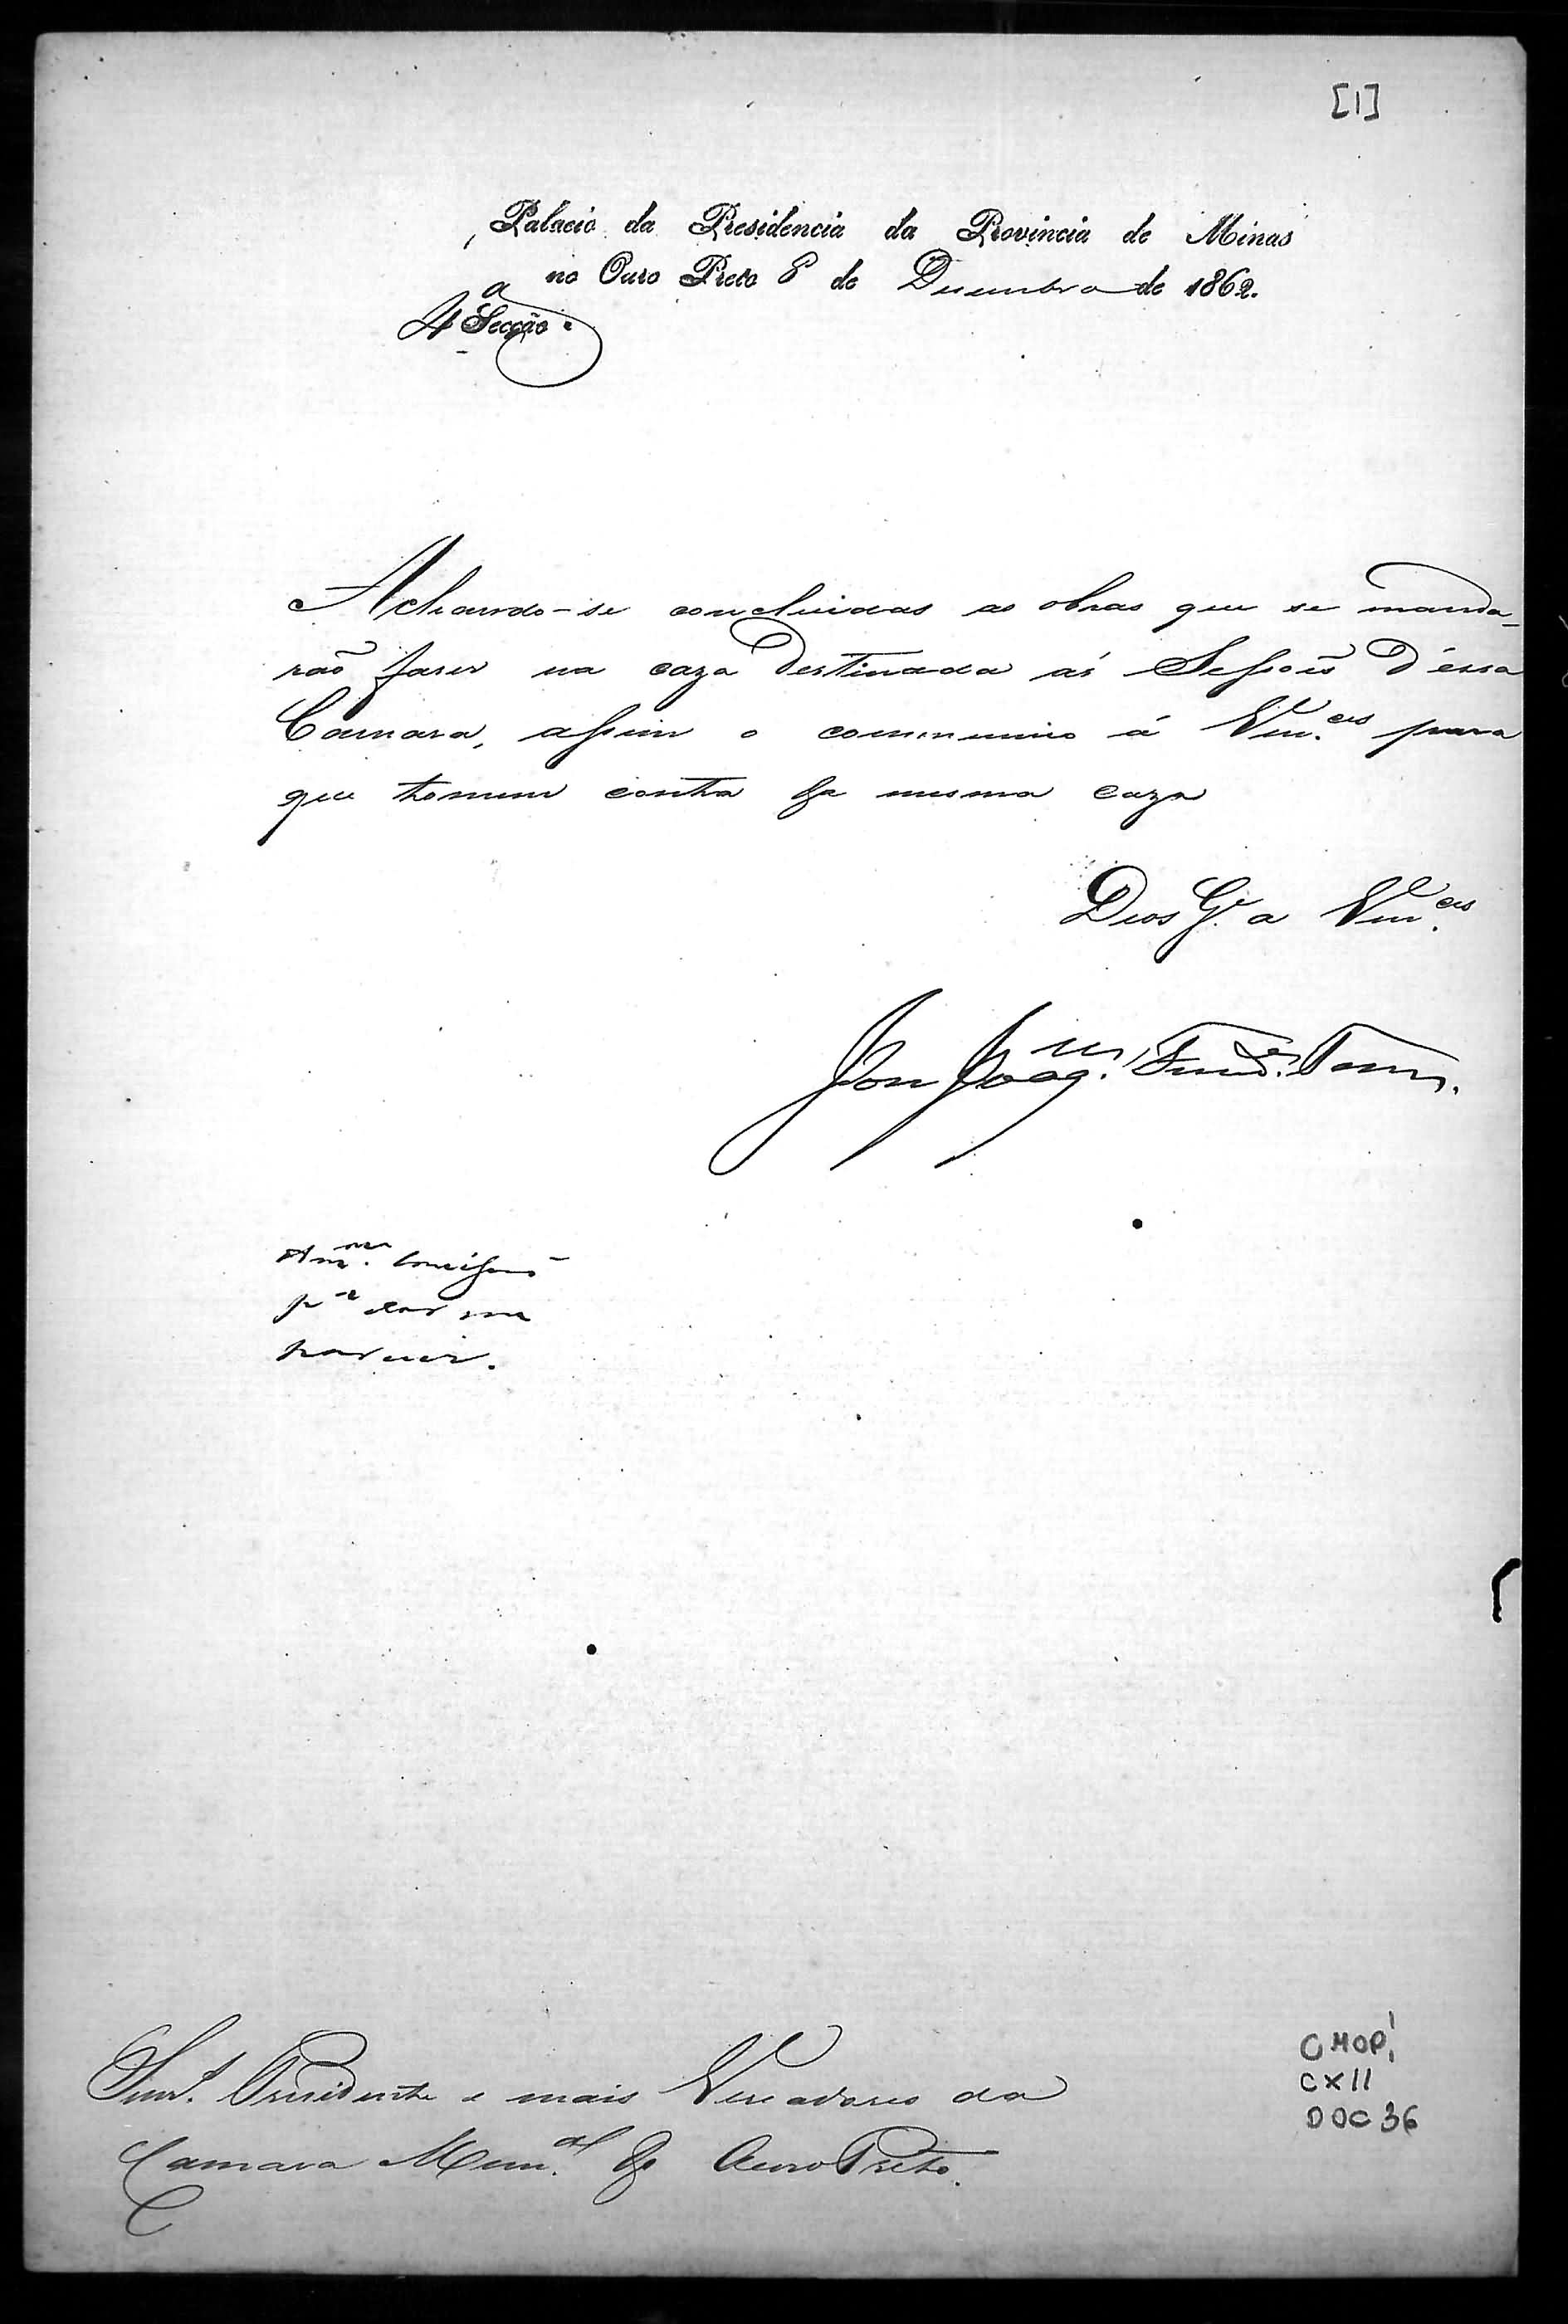 [1]
Palacio da Presidencia da Provincia de Minas
no Ouro Preto 8 de Dezembro de 1862.
4ª Secção.
Achando-se concluidas as obras que se manda-
rão faser na caza destinada ás Sessoẽs d'essa
Camara, assim o communico á Vm.ces para
que tomem conta da mesma caza
Deos G.e a Vm.ces
José Joaq.m Fernd.es Torres.
A m.ma Comissaõ
p.a dar seu
parecer.
Snr.s Presidente e mais Vereadores da
Camara Mun.al do Ouro Preto.
CMOP
CX11
DOC 36